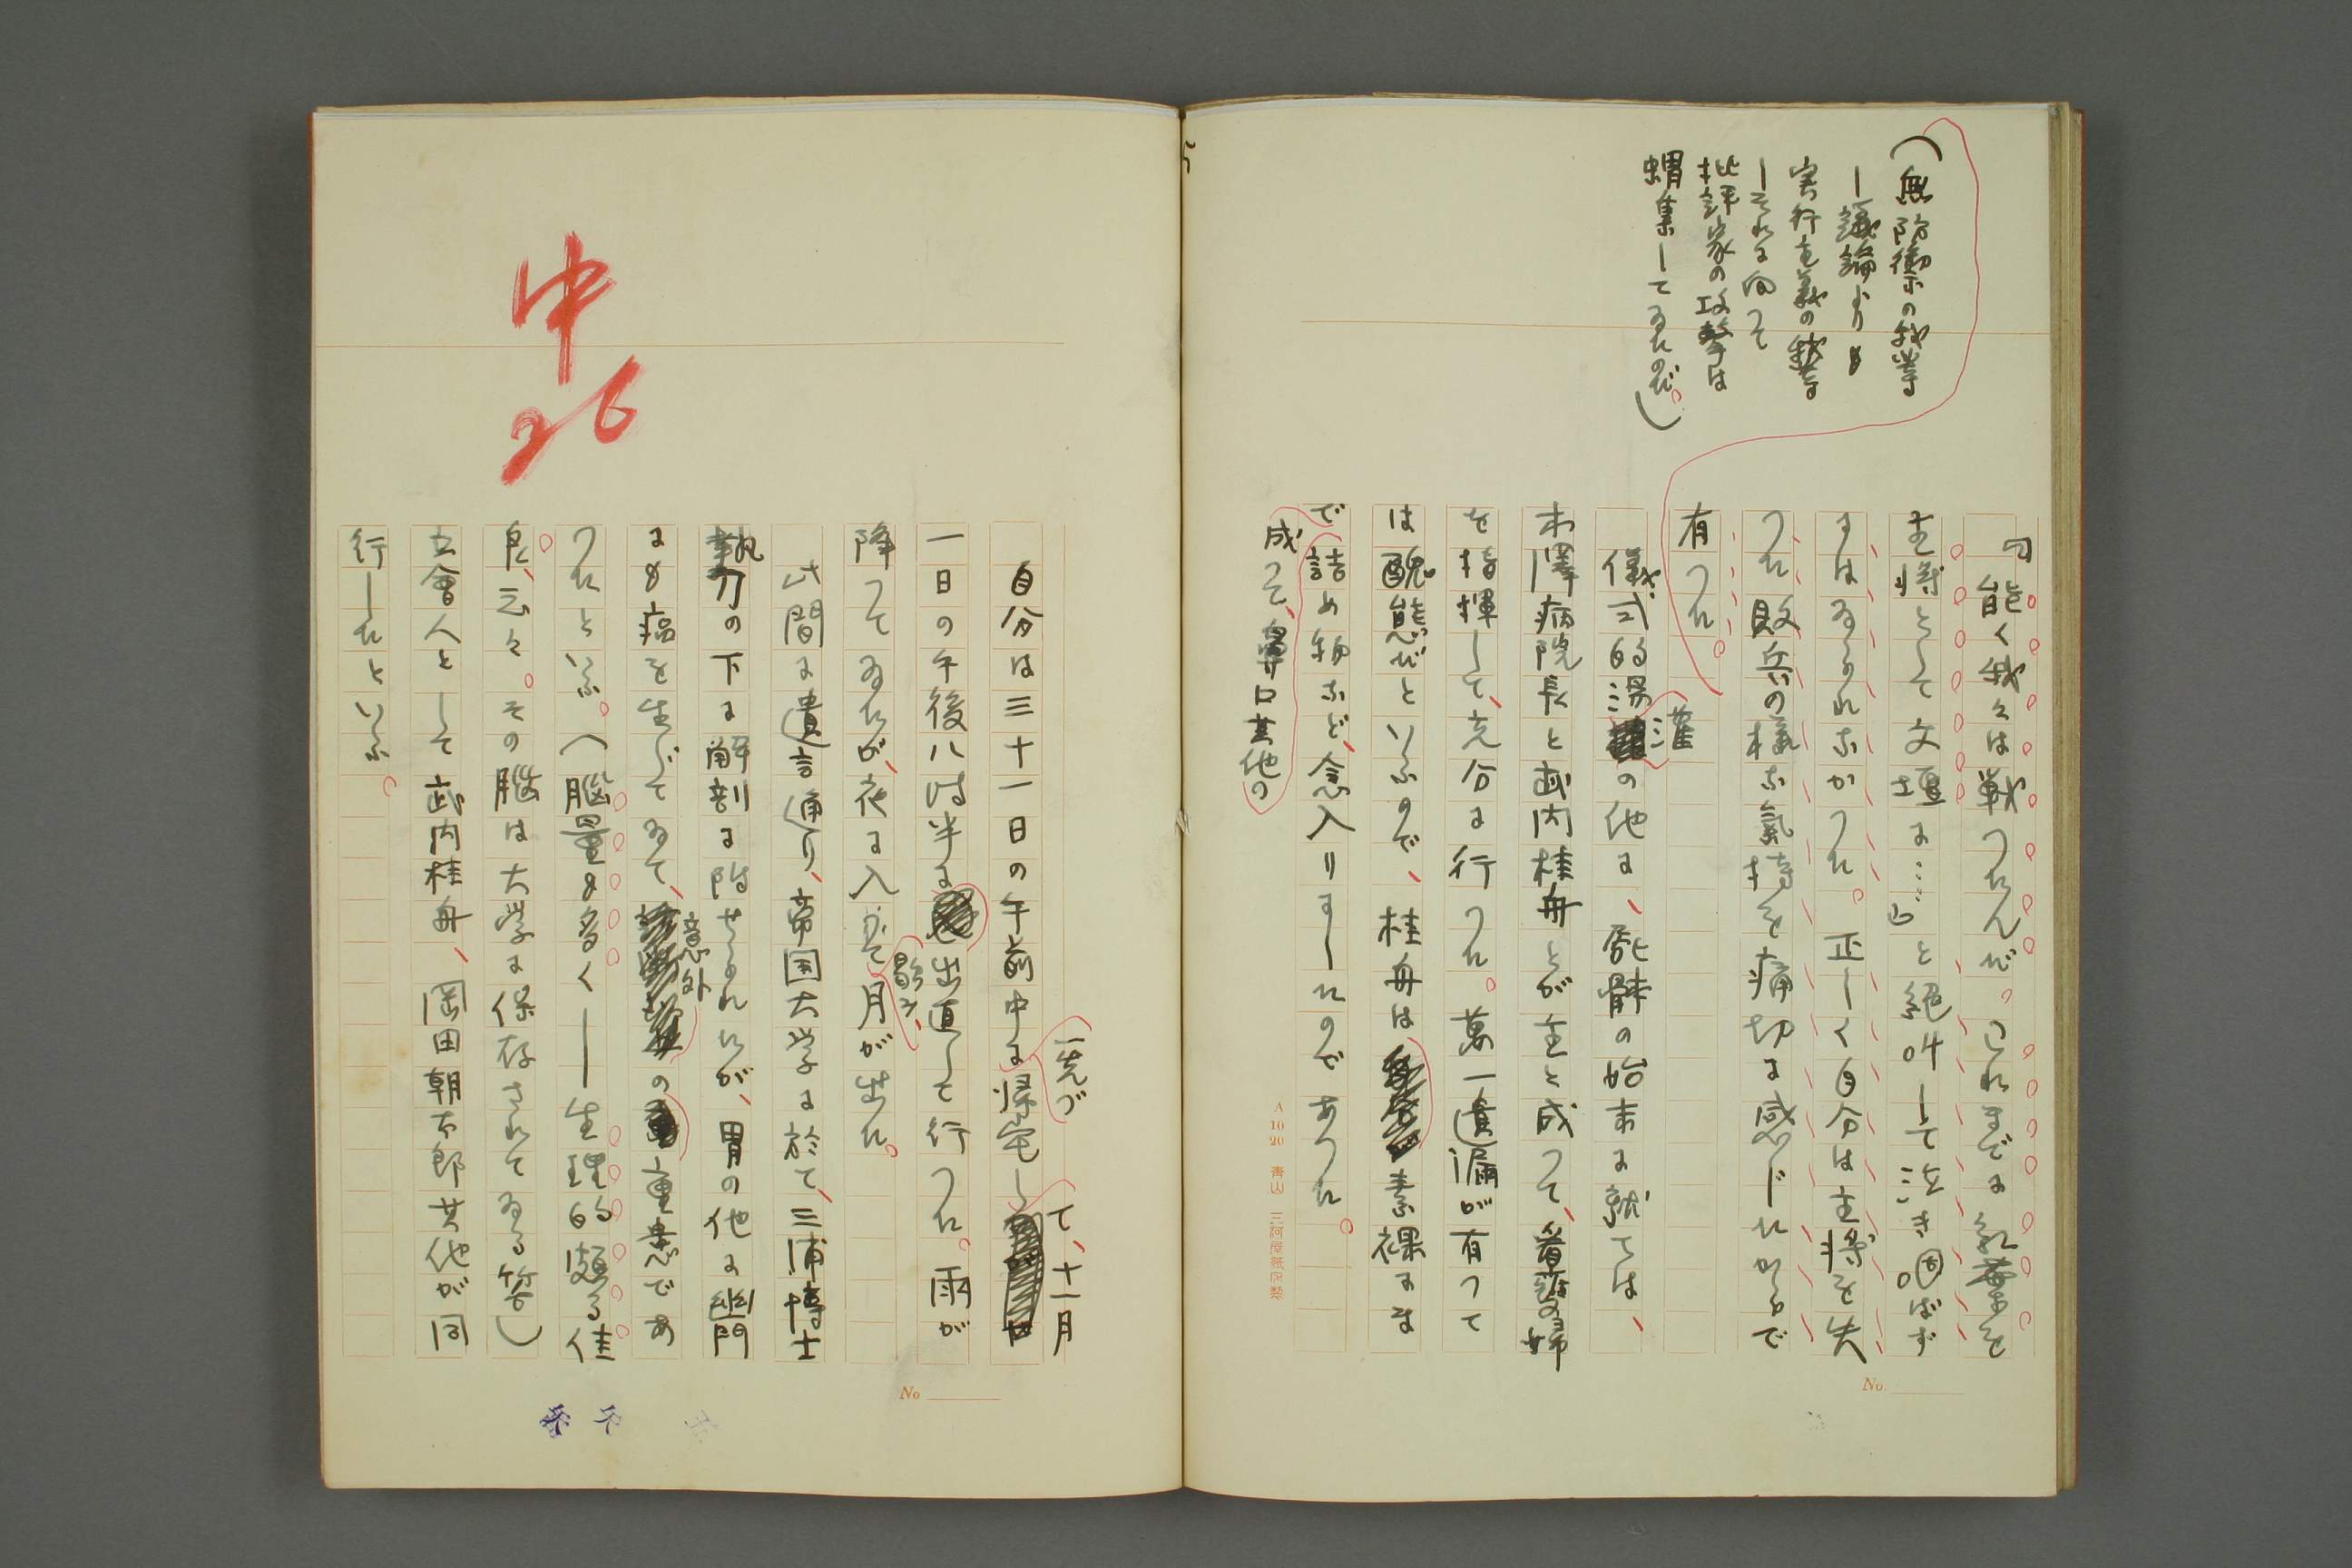 『能く我々は戦つたんだ。これまでに紅葉を
主将として文壇に……』と絶叫して泣き叫ばず
にはゐられなかつた。正しく自分は主将を失
つた敗兵の様な気持を痛切に感じたからで
有つた。
(無防禦の我等
―議論よりも
実行主義の我等
―それに向つて
批評家の攻撃は
蝟集してゐたのだ。)
儀式的湯灌の他に、死體の始末に就ては、
木澤病院長と武内桂舟とが主と成つて、看護婦
を指揮して、充分に行つた。萬一遺漏が有つて
は醜態だといふので、桂舟は素裸にま
で成つて、鼻口其他の
詰め物など、念入りましたのであつた。
A 10 20 青山 三河屋紙店製
No.
自分は三十一日の午前中に一先づ帰宅して、十一月
一日の午後八時半に出直して行つた。雨が
降つてゐたが、夜に入つて歇み、月が出た。
此間に遺言通り、帝国大学に於て、三浦博士
執刀の下に解剖に附せられたが、胃の他に幽門
にも癌を生じてゐて、意外の重患であ
つたといふ。(脳量も多く――生理的頗る佳
良、云々。その脳は大学に保存されてゐる筈)
立會人として武内桂舟、岡田朝太郎其他が同
行したといふ。
No
中
26